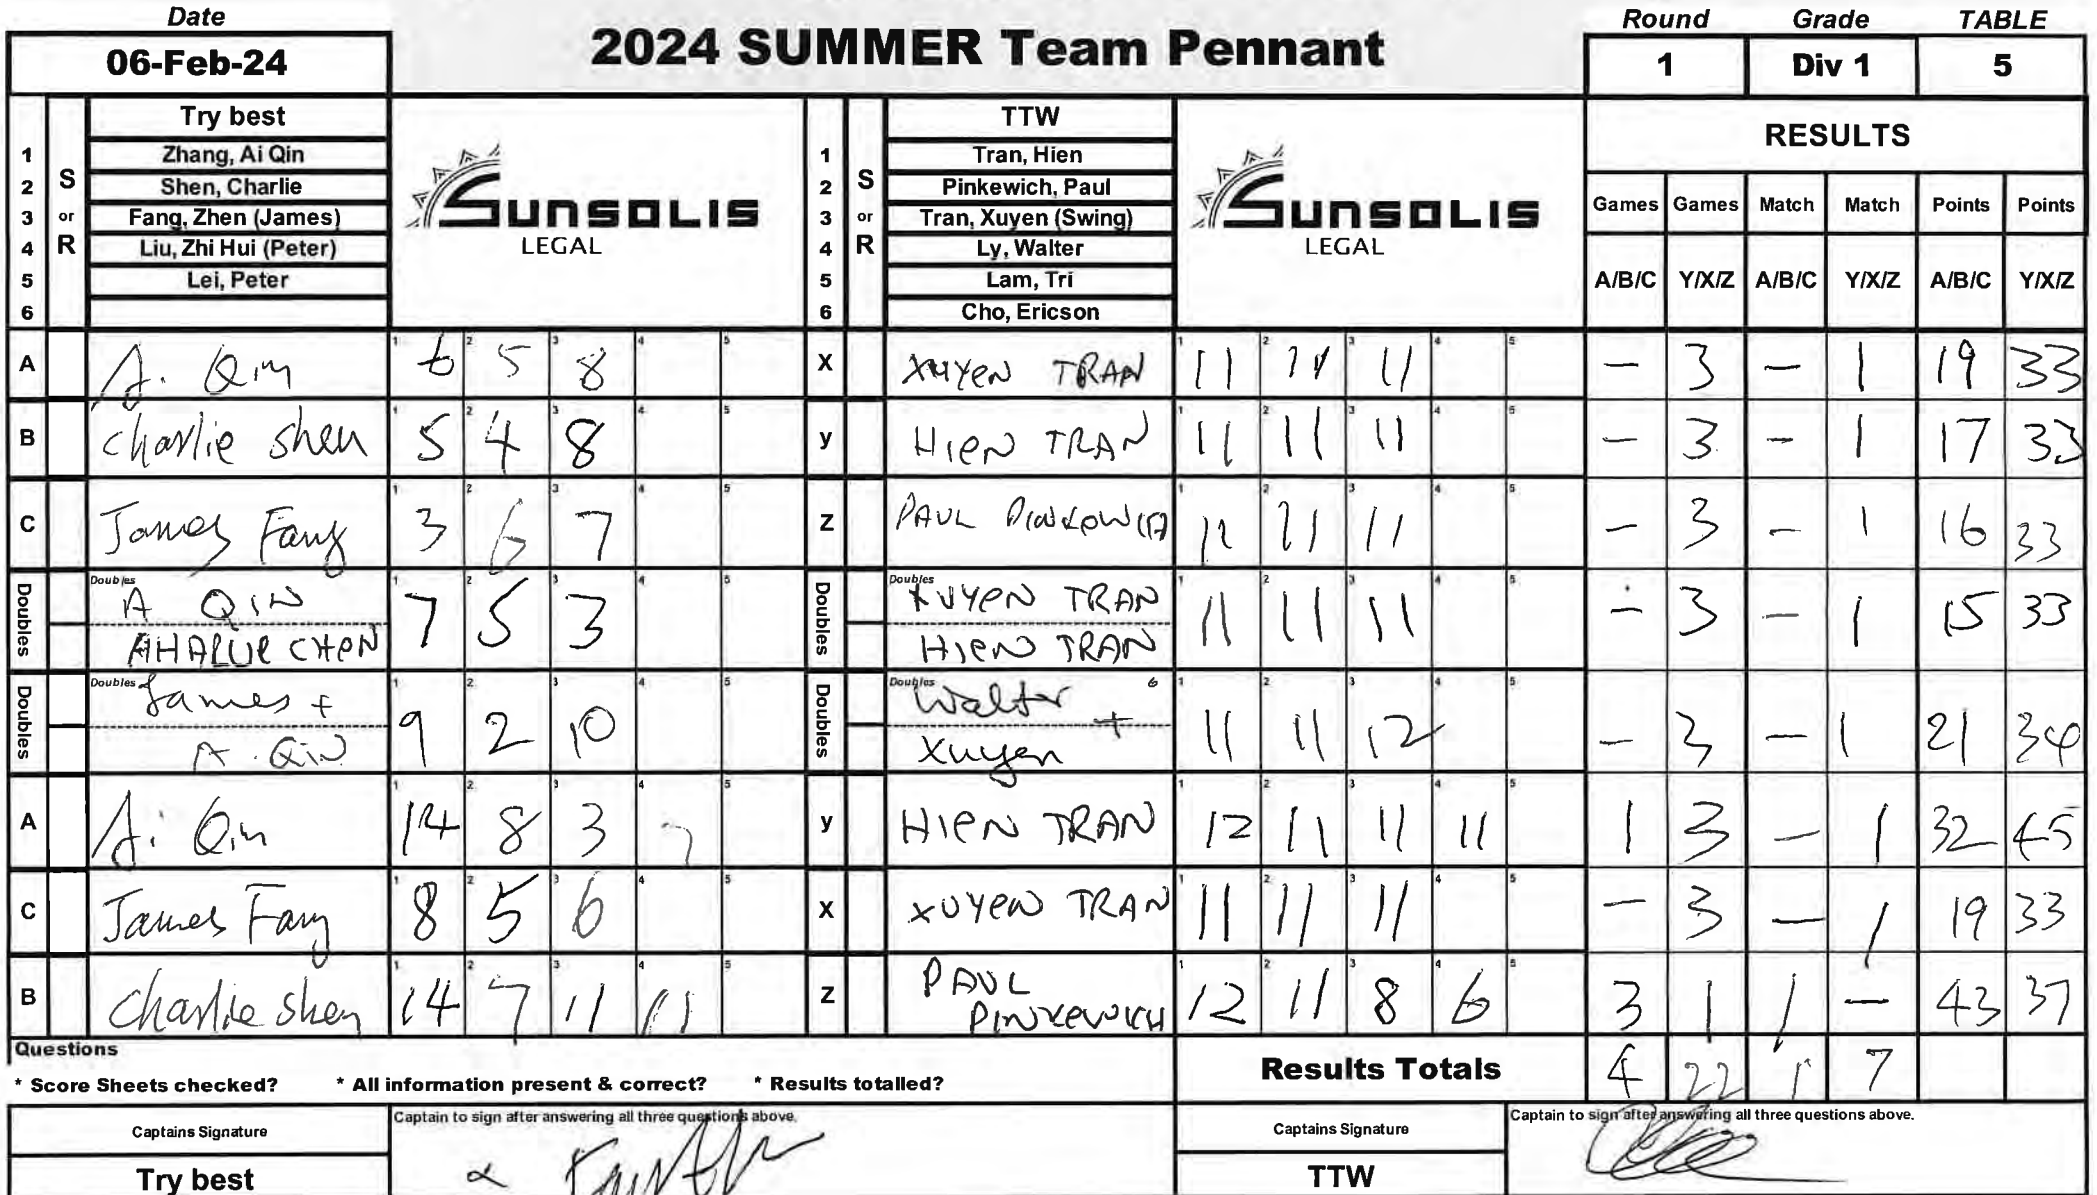 Date
06-Feb-24
2024 SUMMER Team Pennant
Round Grade TABLE
1 Div 1 5
S or R
Try best
1 Zhang, Ai Qin
2 Shen, Charlie
3 Fang, Zhen (James)
4 Liu, Zhi Hui (Peter)
5 Lei, Peter
6
SUNSOLIS
LEGAL
S or R
TTW
1 Tran, Hien
2 Pinkewich, Paul
3 Tran, Xuyen (Swing)
4 Ly, Walter
5 Lam, Tri
6 Cho, Ericson
SUNSOLIS
LEGAL
RESULTS
Games Games Match Match Points Points
A/B/C Y/X/Z A/B/C Y/X/Z A/B/C Y/X/Z
A A. Qin 6 5 8 X XUYEN TRAN 11 11 11 – 3 – 1 19 33
B Charlie Shen 5 4 8 y HIEN TRAN 11 11 11 – 3 – 1 17 33
C James Fang 3 6 7 Z PAUL 11 11 11 – 3 – 1 16 33
Doubles A QIN 7 5 3 Doubles XUYEN TRAN 11 11 11 – 3 – 1 15 33
CHEN HIEN TRAN
Doubles James + 9 2 10 Doubles Walter + 6 11 11 12 – 3 – 1 21 34
A. QIN Xuyen
A Ai Qin 14 8 3 7 y HIEN TRAN 12 11 11 11 1 3 – 1 32 45
C James Fang 8 5 6 X XUYEN TRAN 11 11 11 – 3 – 1 19 33
B Charlie Shen 14 7 11 11 Z PAUL PINKEWICH 12 11 8 6 3 1 1 – 43 37
Questions
* Score Sheets checked? * All information present & correct? * Results totalled?
Results Totals 4 22 1 7
Captains Signature
Captain to sign after answering all three questions above.
Try best
Captains Signature
Captain to sign after answering all three questions above.
TTW